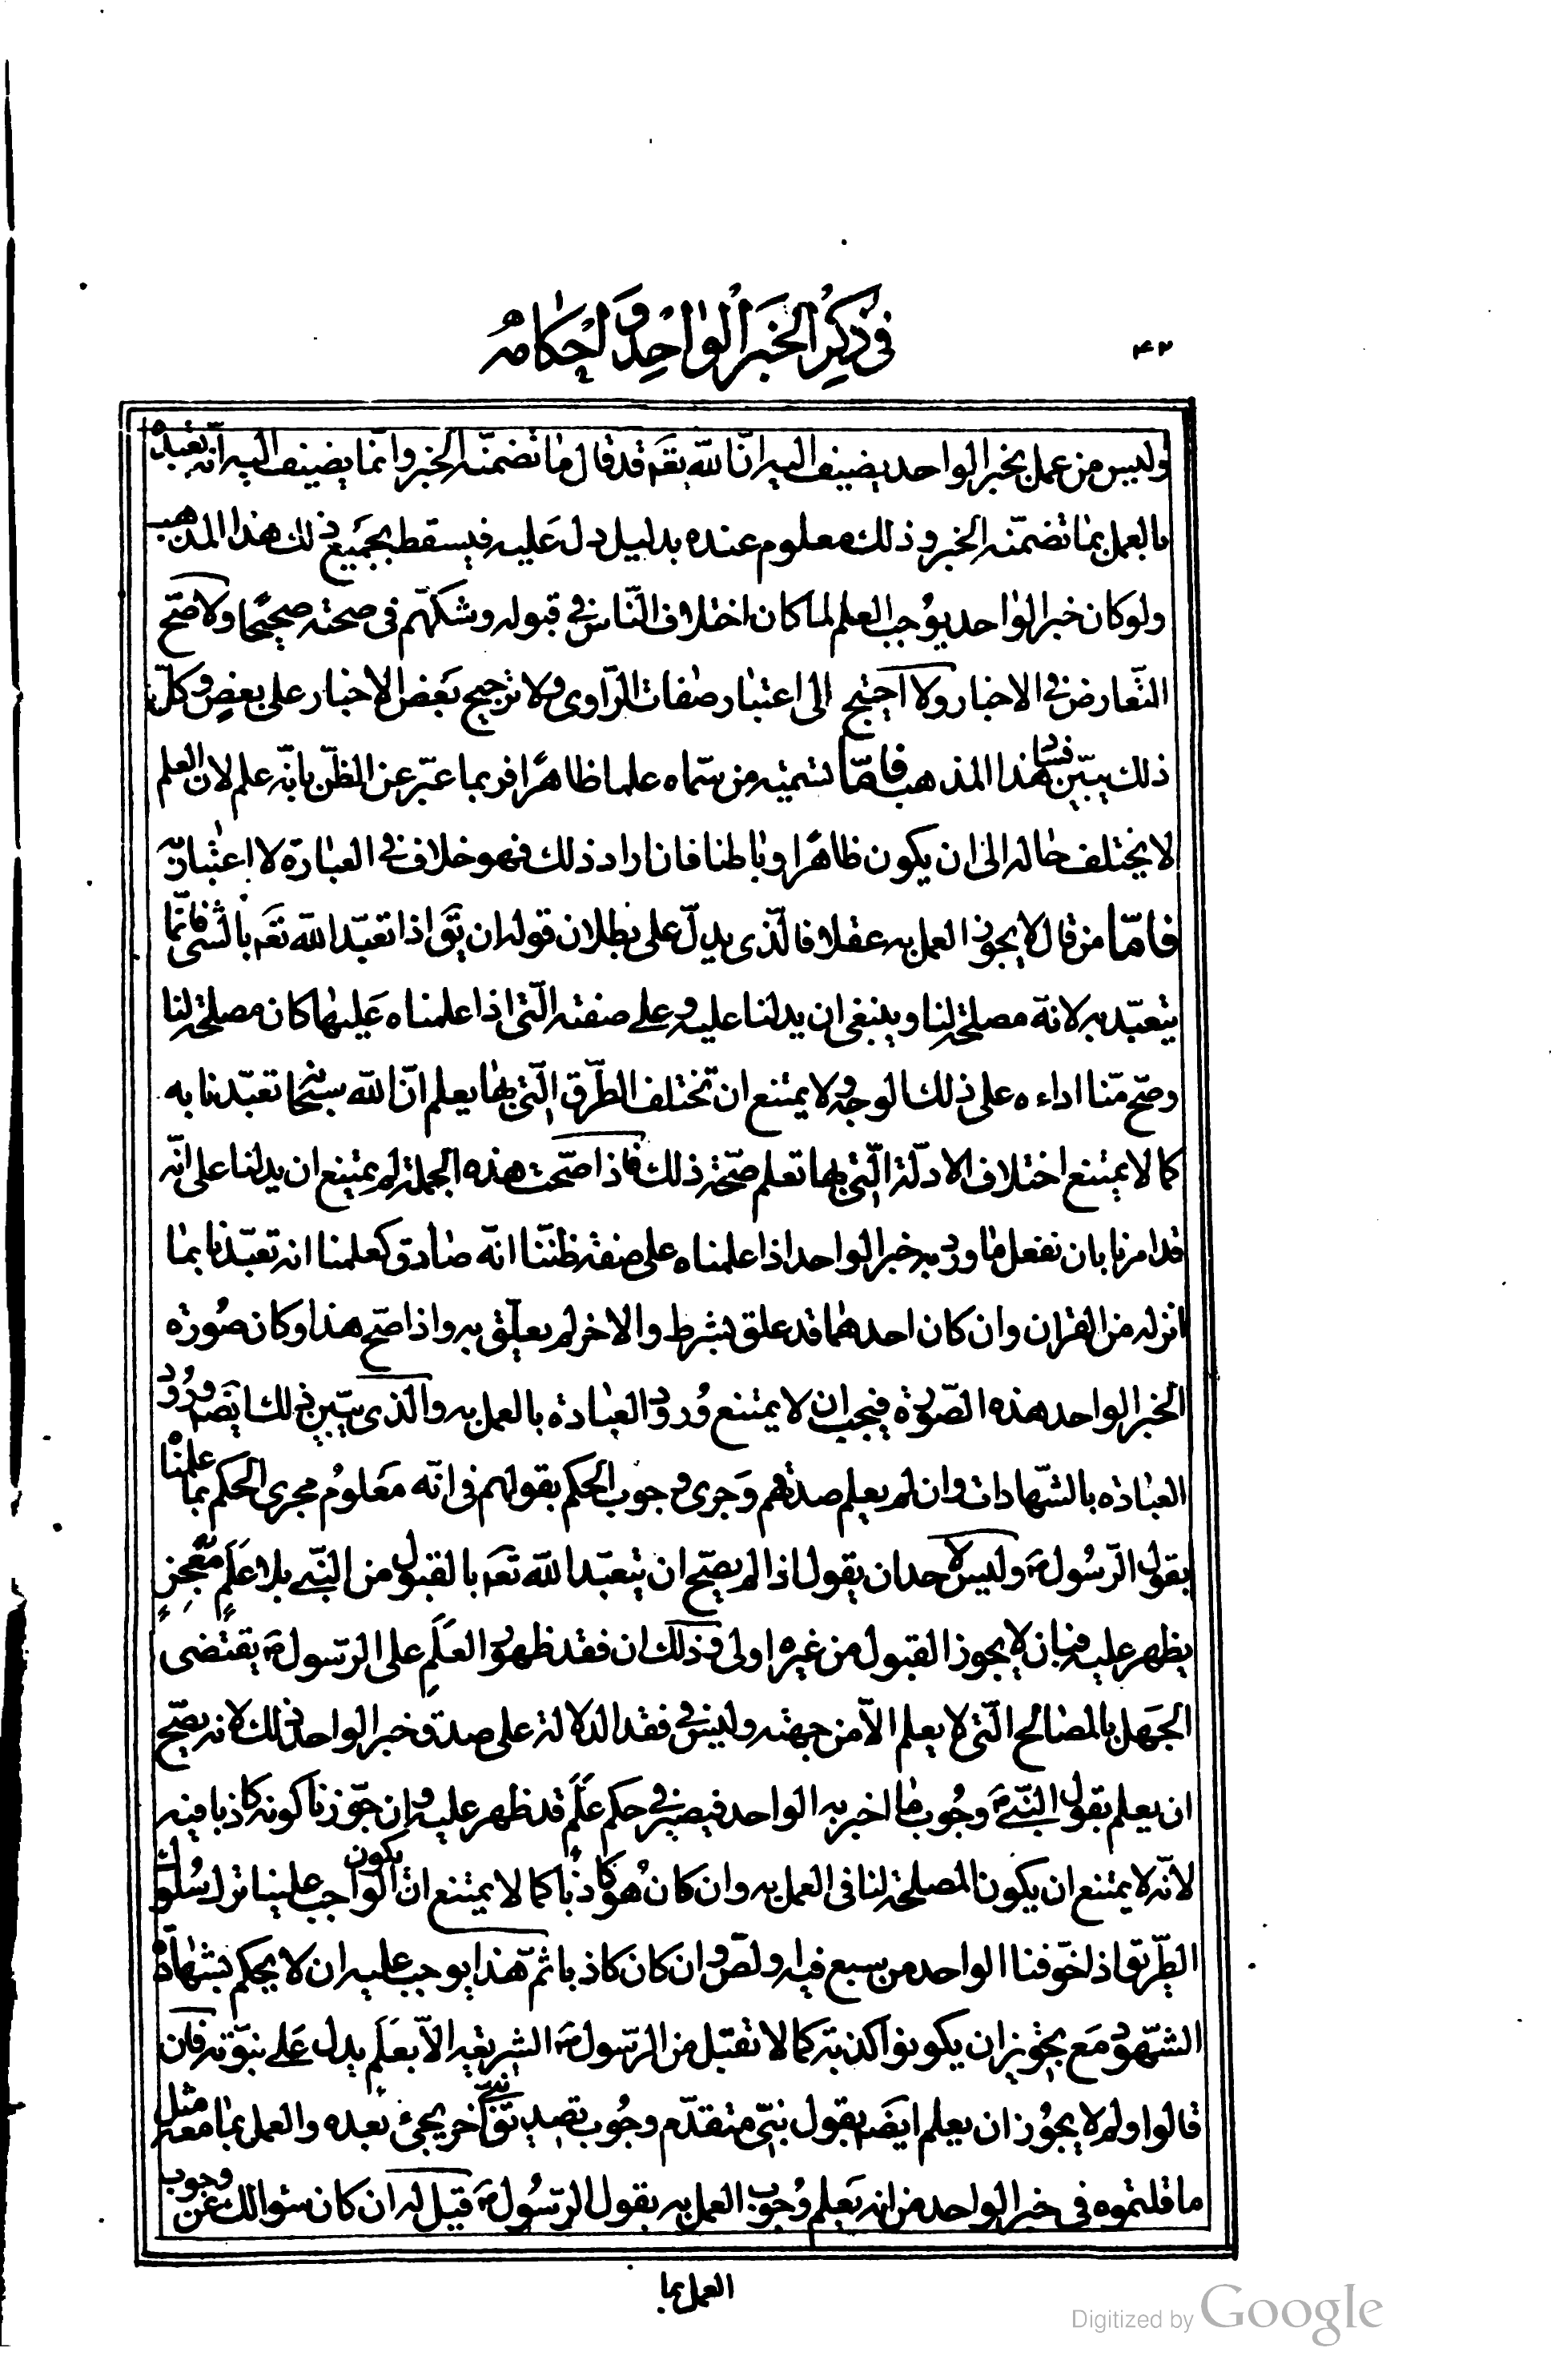 ٤٢
فى ذكر الخبر الواحد واحكامه
وليس من عمل بخبر الواحد يضيف اليه ان الله تعَم قد قال ما تضمنه الخبر وانما يضيف اليه انه تعبده
بالعمل بما تضمّنه الخبر وذلك معلوم عنده بدليل دل عليه فيسقط بجميع ذلك هذا المذهب
ولو كان خبر الواحد يوجب العلم لما كان اختلاف النّاس فى قبوله وشكهّم فى صحته صحيحًا ولا صّح
التّعارض فى الاخبار ولا احتيج الى اعتبار صفات الرّاوى ولا ترجيح بعض الاخبار على بعض وكلّ
ذلك يبيّن فساد هذا المذهب فامّا تسميته من سمّاه علما ظاهرًا فربما عبّر عن الظّن بانّه علم لان العلم
لا يختلف حاله الى ان يكون ظاهرًا وباطنا فان اراد ذلك فهو خلاف فى العبارة لا اعتبار به
فامّا من قال لا يجوز العمل به عقلا فالّذى يدلّ على بطلان قوله ان يَق اذا تعبّد الله تعَم بالشئ فانّما
يتعبّد به لانّه مصلحة لنا وينبغى ان يدلنا عليه وعلى صفته الّتى اذا علمناه عليها كان مصلحة لنا
وصّح منّا اداءه على ذلك الوجه ولا يمتنع ان تختلف الطّرق الّتى بها يعلم انّ الله سبحا تعبّدنا به
كما لا يمتنع اختلاف الادلّة الّتى بها تعلم صّحة ذلك فاذا صّحت هذه الجملة لم يمتنع ان يدلنا على انّه
قد امرنا بان نفعل ما ورد به خبر الواحد اذا علمناه على صفة ظننّا انّه صادق كعلمنا انه تعبّدنا بما
انزله من القران وان كان احدهما قد علق بشرط والاخر لم يعلّق به واذا صّح هذا وكان صورة
الخبر الواحد هذه الصّورة فيجب ان لا يمتنع ورود العبادة بالعمل به والّذى يبيّن ذلك ايضَه ورود
العبادة بالشّهادات وان لم يعلم صدقهم وجرى وجوب الحكم بقولهم فى انّه معلوم مجرى الحكم بما علمناه
بقول الرّسول ص وليس لاحد ان يقول اذا لم يصّح ان يتعبّد الله تعَم بالقبول من النّبى بلا عَلَم معجز
يظهر عليه فبان لا يجوز القبول من غيره اولى وذلك ان فقد ظهور العَلَم على الرّسول ص يقتضى
الجهل بالمصالح الّتى لا يعلم الاّ من جهته وليس فى فقد الدلالة على صدق خبر الواحد ذلك لانه يصّح
ان يعلم بقول النّبى ص وجوب ما اخبر به الواحد فيصير فى حكم عَلَم قد ظهر عليه وان جوّزنا كونه كاذبا فيه
لانّه لا يمتنع ان يكون المصلحة لنا فى العمل به وان كان هو كاذبًا كما لا يمتنع ان يكون الواجب علينا ترك سلوك
الطّريق اذا خوّفنا الواحد من سبع فيه او لصّ وان كان كاذبا ثمّ هذا يوجب عليه ان لا يحكم بشهادة
الشّهود مع تجويز ان يكونوا كذبة كما لا تقتبل من الرّسول ص الشريعة الاّ بعلَم يدل على نبوّته فان
قالوا ولم لا يجوز ان يعلم ايضَه بقول نبىّ متقدّم وجوب تصديق نبى اخر يجئ بعده والعمل بما معه مثل
ما قلتموه فى خبر الواحد من انه يعلم وجوب العمل به بقول الرّسول ص قيل له ان كان سؤالك عن وجوب
العمل بما
Digitized by Google